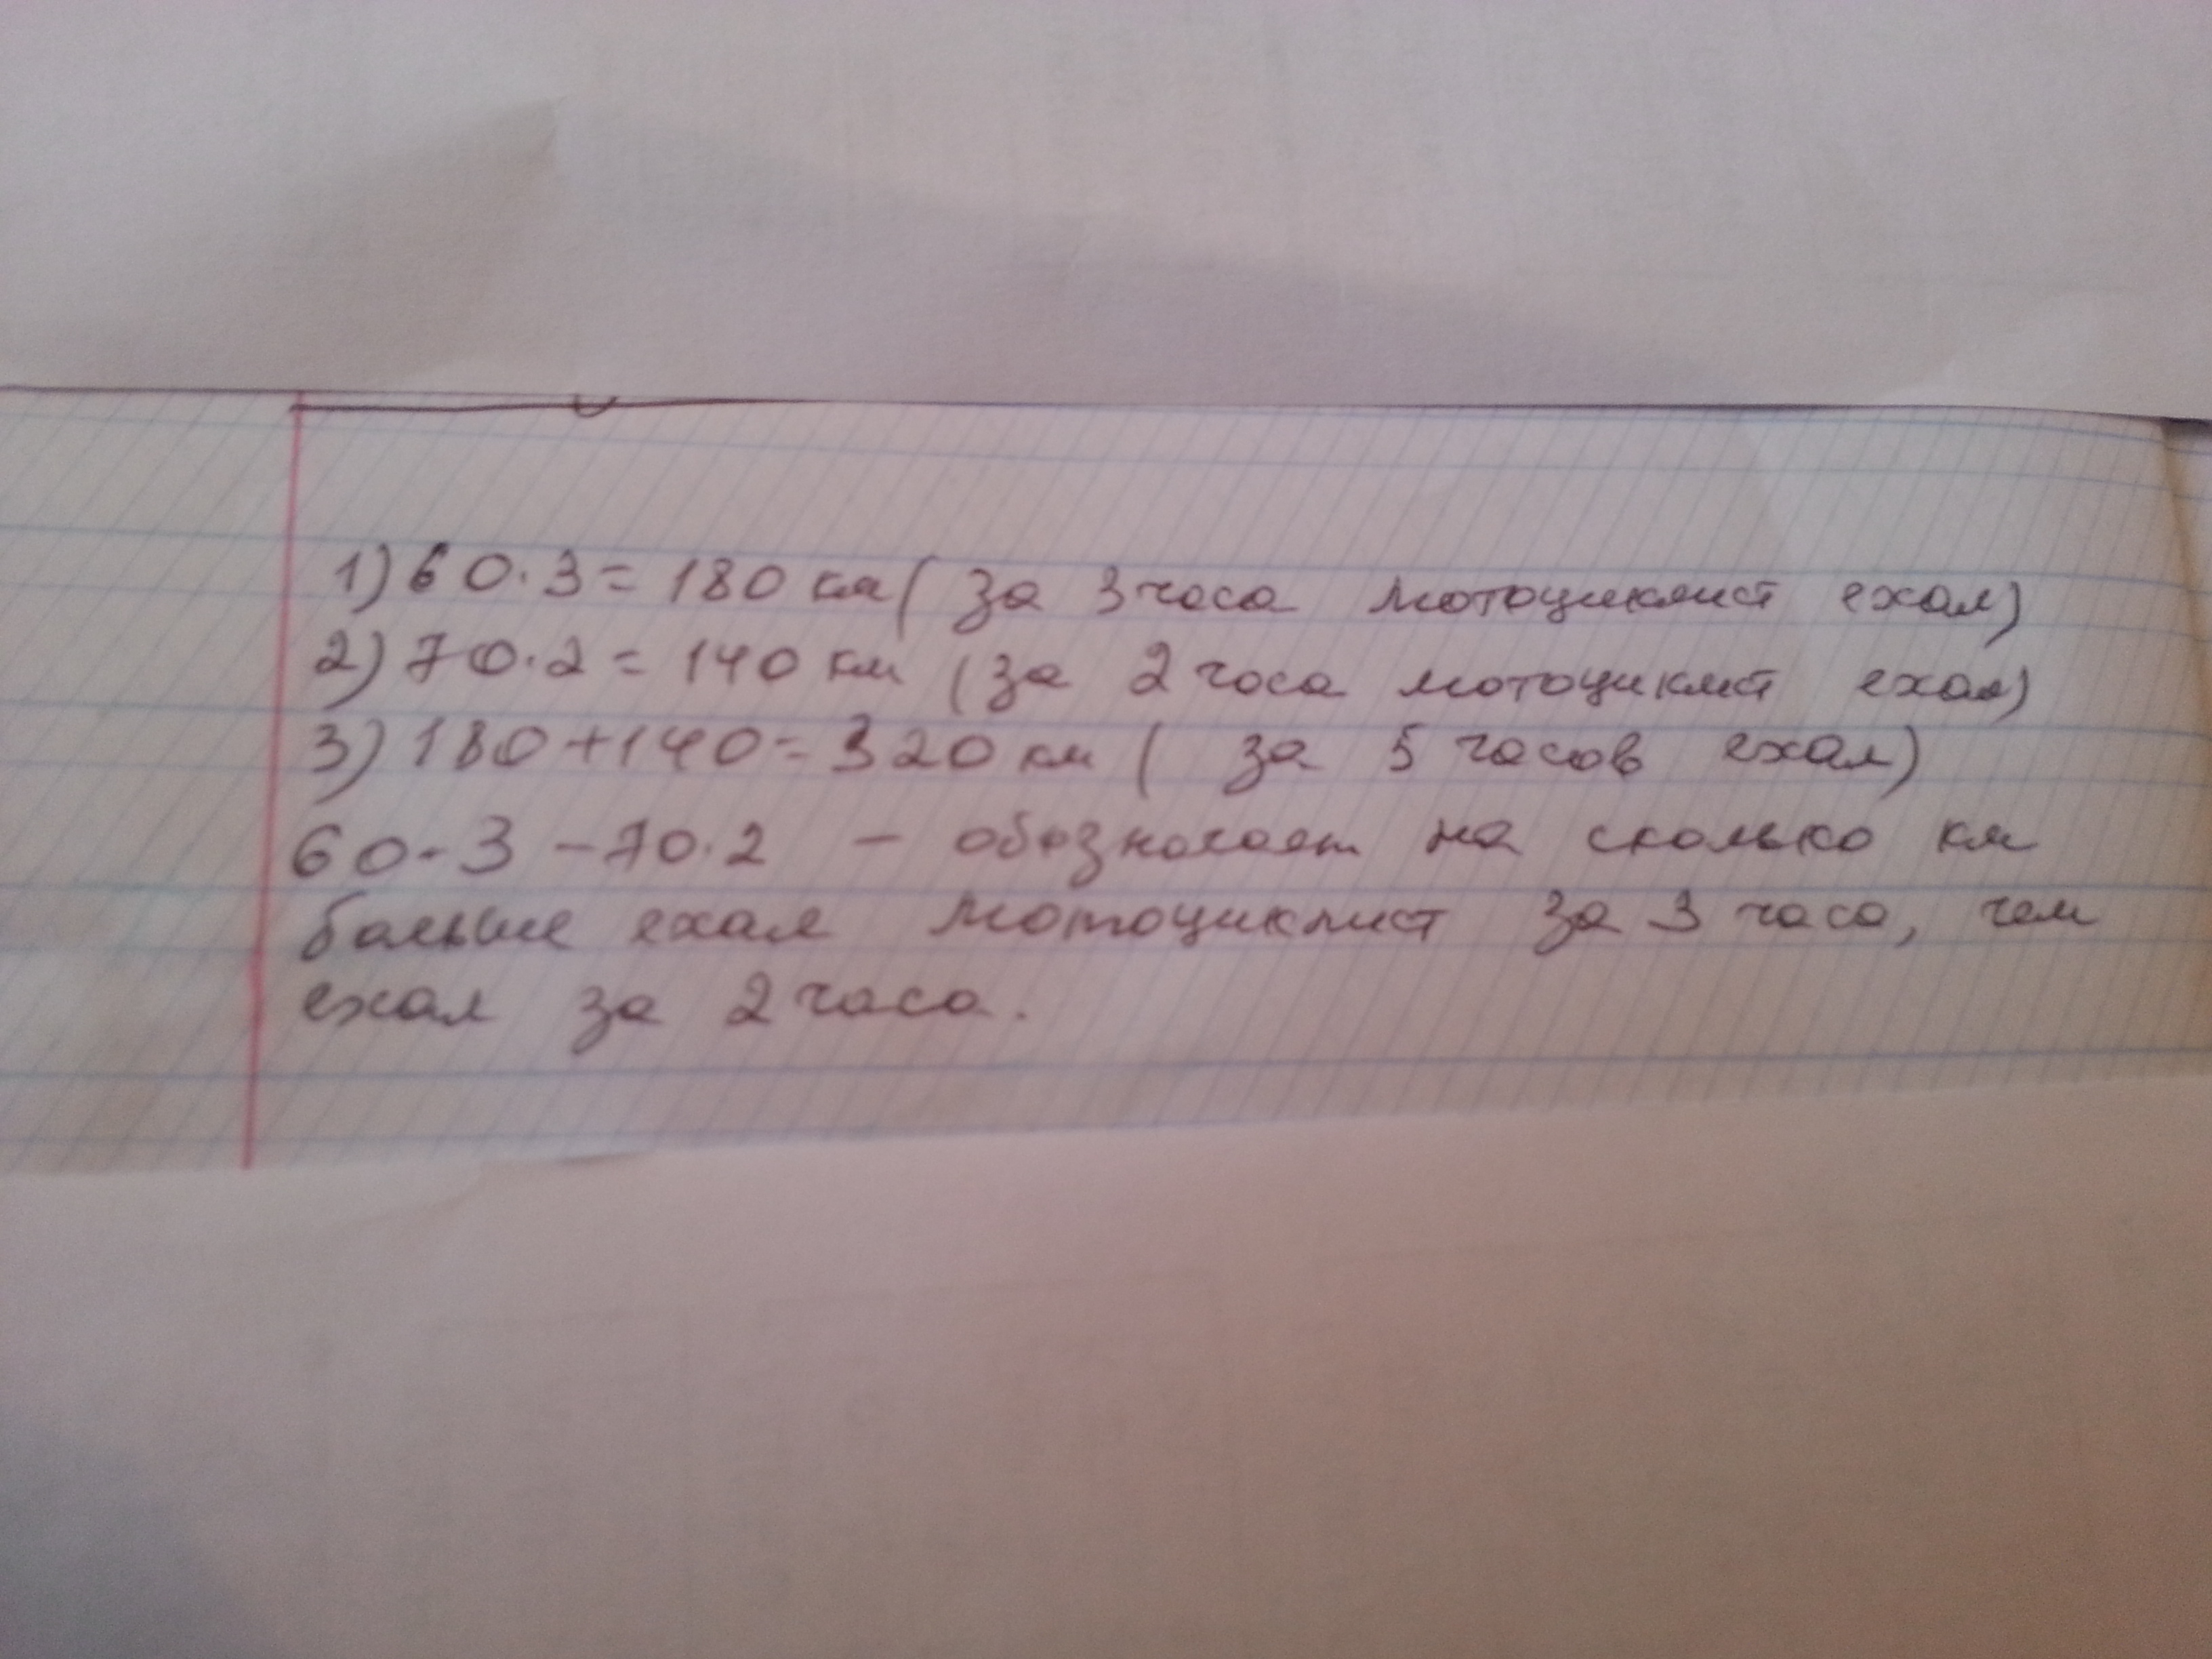 1) 60·3 = 180 км ( за 3 часа мотоциклист ехал)
2) 70·2 = 140 км (за 2 часа мотоциклист ехал)
3) 180+140= 320 км ( за 5 часов ехал)
60·3 -70·2 - обозначает на сколько км
больше ехал мотоциклист за 3 часа, чем
ехал за 2 часа.